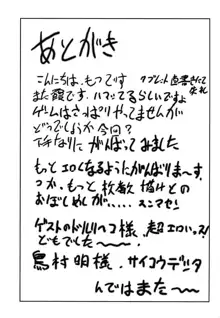 あとがき
こんにちは、もつです
タブレット直書きにて失礼
また霞です。ハマってるらしいですよ
ゲームはさっぱりやってませんが
どうでしょうか今回?
下手なりにがんばってみました
もっとエロくなるようにがんばりま〜す。
つか、もっと枚数描けとの
おぼしめしが、、、、スンマセン
ゲストのドリルリペコ様、超エロいっス!
どもでした〜〜。
鳥村明様、サイコウデシタ
んではまた〜〜